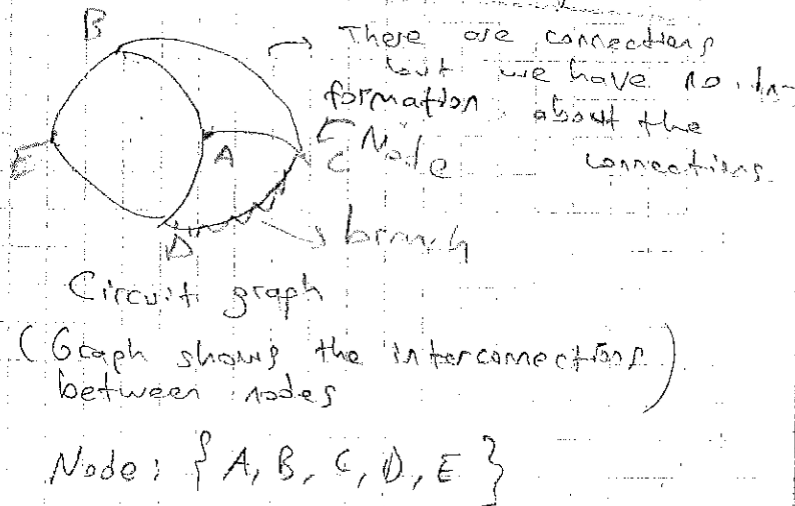 B
There are connections
but we have no in-
formation about the
connections
E
A
C Node
D
branch
Circuit graph
(Graph shows the interconnections
between nodes)
Node: { A, B, C, D, E }